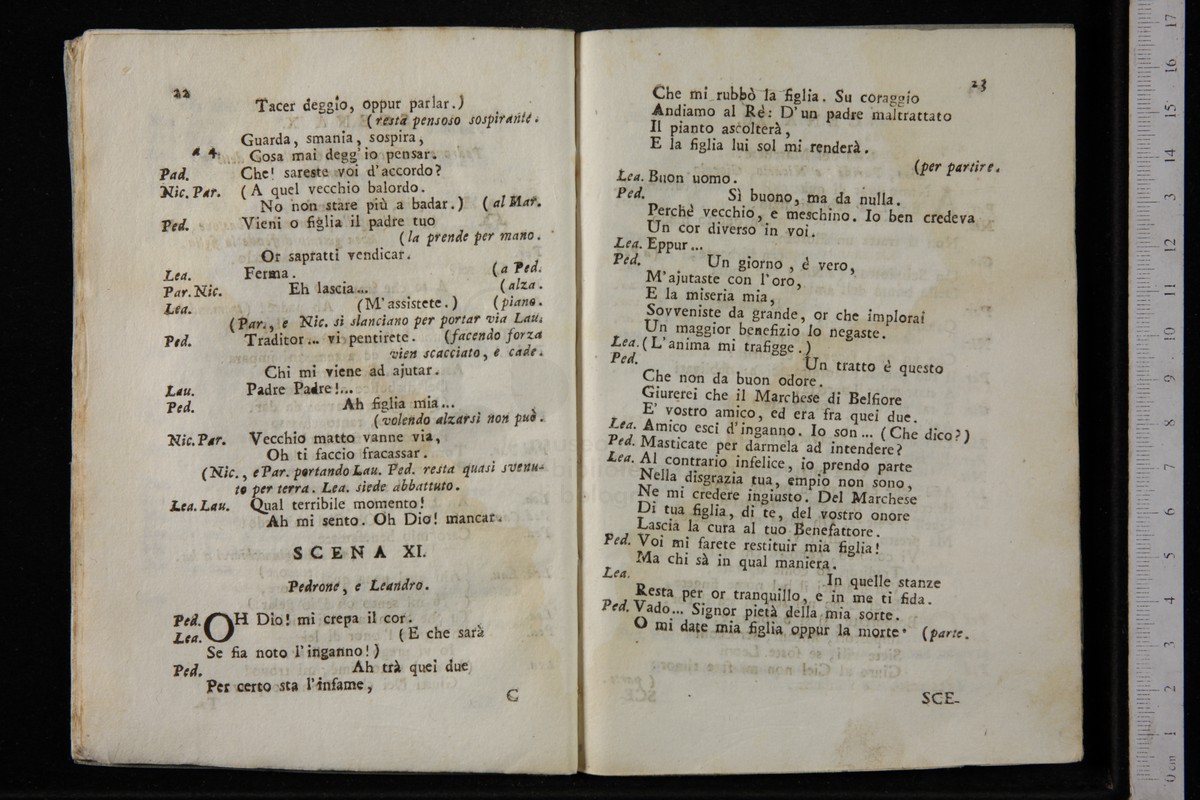 22
Tacer deggio, oppur parlar.)
(resta pensoso sospirante.
Guarda, smania, sospira,
a 4 Cosa mai degg'io pensar.
Pad. Che! sareste voi d'accordo?
Nic. Par. (A quel vecchio balordo.
No non stare più a badar.) (al Mar.
Ped. Vieni o figlia il padre tuo
(la prende per mano.
Or sapratti vendicar.
Lea. Ferma. (a Ped.
Par. Nic. Eh lascia... (alza.
Lea. (M'assistete.) (piano.
(Par., e Nic. si slanciano per portar via Lau.
Ped. Traditor... vi pentirete. (facendo forza
vien scacciato, e cade.
Chi mi viene ad ajutar.
Lau. Padre Padre!...
Ped. Ah figlia mia...
(volendo alzarsi non può.
Nic. Par. Vecchio matto vanne via,
Oh ti faccio fracassar.
(Nic., e Par. portando Lau. Ped. resta quasi svenu-
to per terra. Lea. siede abbattuto.
Lea. Lau. Qual terribile momento!
Ah mi sento. Oh Dio! mancar.
SCENA XI.
Pedrone, e Leandro.
Ped. OH Dio! mi crepa il cor.
Lea. (E che sarà
Se fia noto l'inganno!)
Ped. Ah trà quei due
Per certo sta l'infame,
C
23
Che mi rubbò la figlia. Su coraggio
Andiamo al Rè: D'un padre maltrattato
Il pianto ascolterà,
E la figlia lui sol mi renderà.
(per partire.
Lea. Buon uomo.
Ped. Sì buono, ma da nulla.
Perchè vecchio, e meschino. Io ben credeva
Un cor diverso in voi.
Lea. Eppur...
Ped. Un giorno, è vero,
M'ajutaste con l'oro,
E la miseria mia,
Sovveniste da grande, or che implorai
Un maggior benefizio lo negaste.
Lea. (L'anima mi trafigge.)
Ped. Un tratto è questo
Che non da buon odore.
Giurerei che il Marchese di Belfiore
E' vostro amico, ed era fra quei due.
Lea. Amico esci d'inganno. Io son... (Che dico?)
Ped. Masticate per darmela ad intendere?
Lea. Al contrario infelice, io prendo parte
Nella disgrazia tua, empio non sono,
Ne mi credere ingiusto. Del Marchese
Di tua figlia, di te, del vostro onore
Lascia la cura al tuo Benefattore.
Ped. Voi mi farete restituir mia figlia!
Ma chi sà in qual maniera.
Lea. In quelle stanze
Resta per or tranquillo, e in me ti fida.
Ped. Vado... Signor pietà della mia sorte.
O mi date mia figlia oppur la morte. (parte.
SCE-